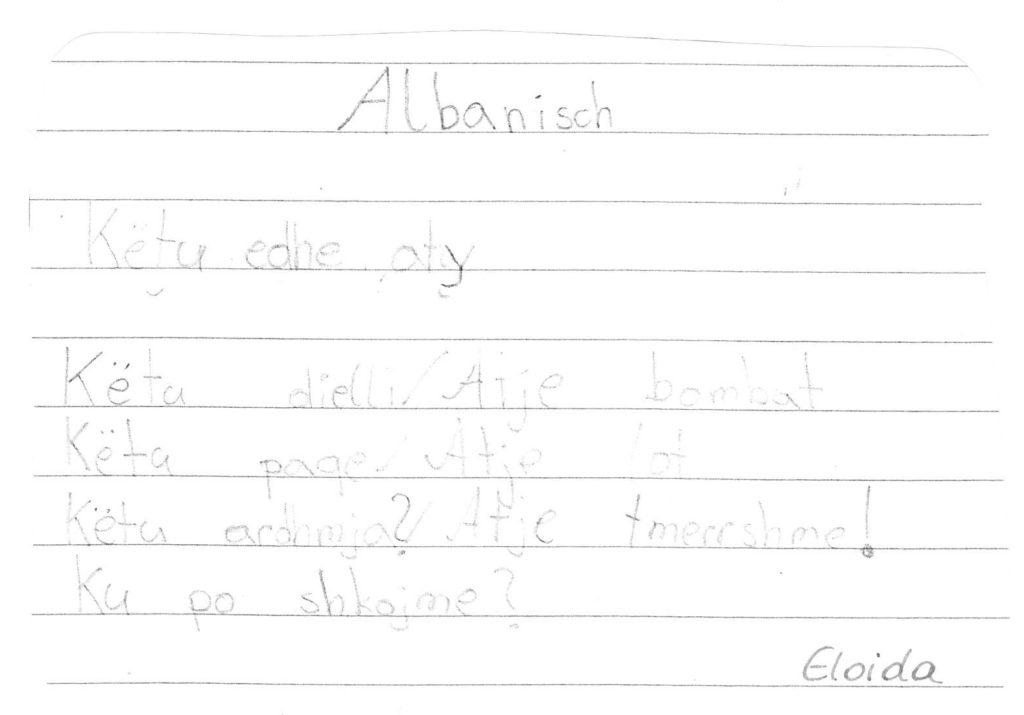 Albanisch
Këtu edhe aty
Këtu dielli/Atje bombat
Këtu paqe/Atje lot
Këtu ardhmja?/Atje tmerrshme!
Ku po shkojme?
Eloida